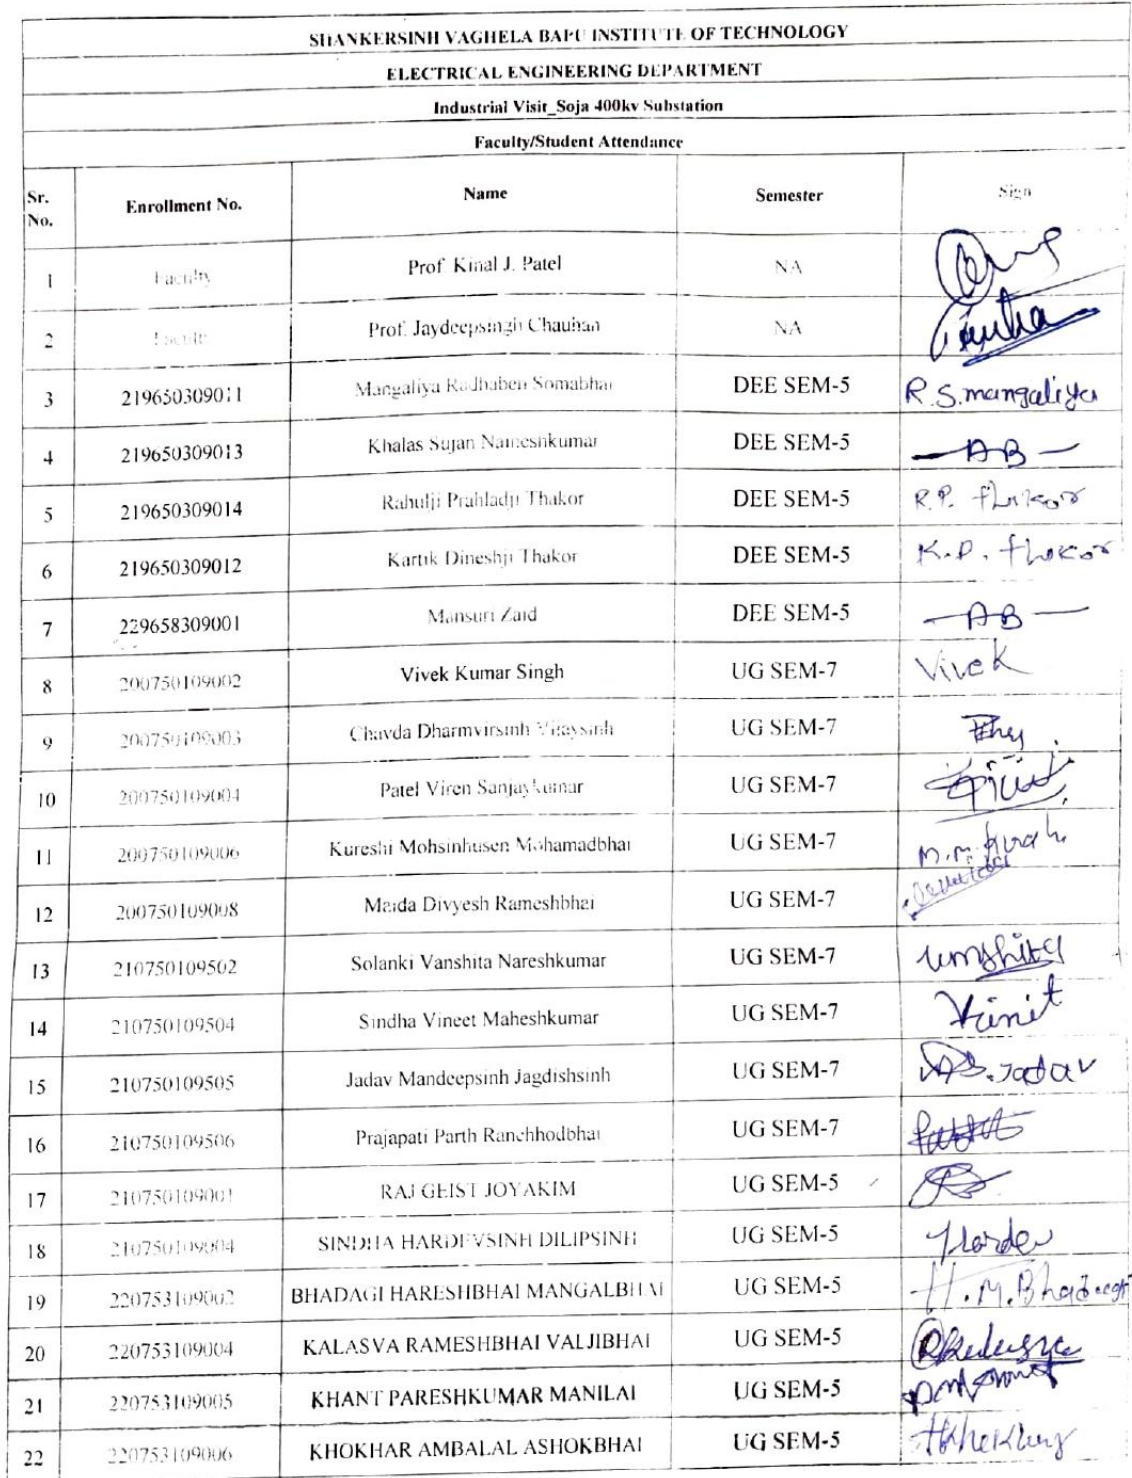 SHANKERSINH VAGHELA BAPU INSTITUTE OF TECHNOLOGY
ELECTRICAL ENGINEERING DEPARTMENT
Industrial Visit_Soja 400kv Substation
Faculty/Student Attendance
Sr. No. Enrollment No. Name Semester Sign
1 Faculty Prof. Kinal J. Patel NA
2 Faculty Prof. Jaydeepsingh Chauhan NA
3 219650309011 Mangaliya Radhaben Somabhai DEE SEM-5 R.S.mangaliya
4 219650309013 Khalas Sujan Nameshkumar DEE SEM-5 —AB—
5 219650309014 Rahulji Prahladji Thakor DEE SEM-5 R.P. thakor
6 219650309012 Kartik Dineshji Thakor DEE SEM-5 K.D. thakor
7 229658309001 Mansuri Zaid DEE SEM-5 —AB—
8 200750109002 Vivek Kumar Singh UG SEM-7 Vivek
9 200750109003 Chavda Dharmvirsinh Vijaysinh UG SEM-7
10 200750109004 Patel Viren Sanjaykumar UG SEM-7
11 200750109006 Kureshi Mohsinhusen Mohamadbhai UG SEM-7 M.M.
12 200750109008 Maida Divyesh Rameshbhai UG SEM-7
13 210750109502 Solanki Vanshita Nareshkumar UG SEM-7
14 210750109504 Sindha Vineet Maheshkumar UG SEM-7 Vinit
15 210750109505 Jadav Mandeepsinh Jagdishsinh UG SEM-7 Jadav
16 210750109506 Prajapati Parth Ranchhodbhai UG SEM-7
17 210750109001 RAJ GEIST JOYAKIM UG SEM-5
18 210750109004 SINDHA HARDEVSINH DILIPSINH UG SEM-5 Hardev
19 220753109002 BHADAGI HARESHBHAI MANGALBHAI UG SEM-5 H.M.Bhadagi
20 220753109004 KALASVA RAMESHBHAI VALJIBHAI UG SEM-5
21 220753109005 KHANT PARESHKUMAR MANILAL UG SEM-5
22 220753109006 KHOKHAR AMBALAL ASHOKBHAI UG SEM-5